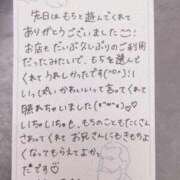 先日はもちと遊んでくれて
ありがとうございました
お店もだいぶ久しぶりのご利用
だったみたいで、もちを選んで
くれてうれしかったです(^o^)!
いっぱいかわいいって言ってくれて
照れちゃいました(>^ω^<)♡
いちゃいちゃも、もちのこともたくさん
さわってくれて お兄さんもきもちよく
なってもらえてよか
ったです♡